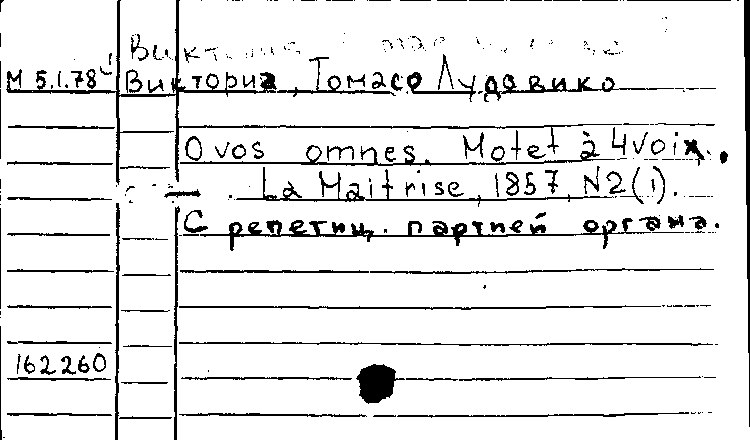 М 5.1.78 Виктория, Томасо Лудовико
O vos omnes. Motet à 4 voix.
La Maitrise, 1857, N2(1).
С репетиц. партией органа.
162260